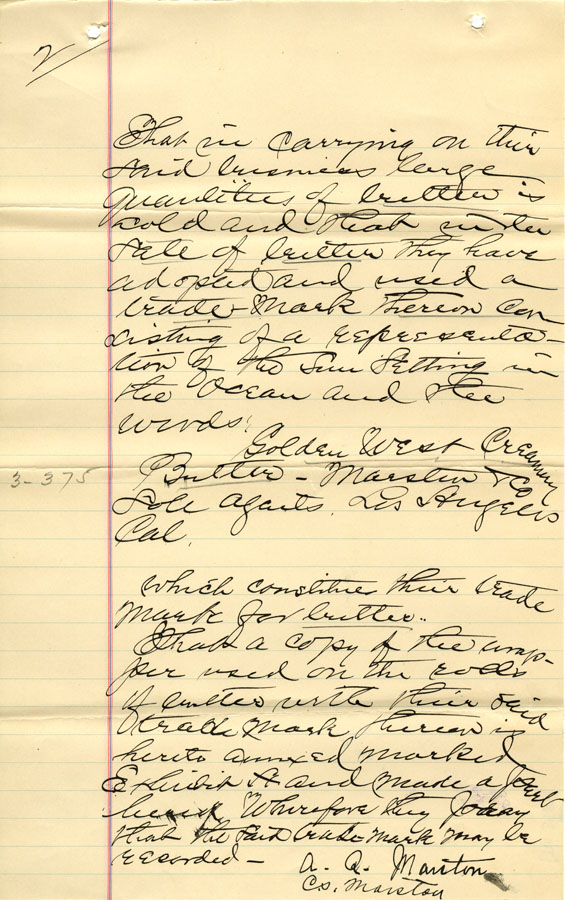 2
That in carrying on their
said business large
quantities of butter is
sold and that in the
sale of butter they have
adopted and used a
trade-Mark thereon con
sisting of a representa-
tion of the Sun Setting in
the Ocean and the
words:
Golden West Creamery
Butter - Marston & Co
Sole agents, Los Angeles
Cal.
3-375
which constitutes their trade
mark for butter.
That a copy of the wrap-
per used on the rolls
of butter with their said
trade mark thereon is
hereto annexed marked
Exhibit A and made a part
hereof Wherefore they pray
that the said trade-mark may be
recorded-
A. Q. Marston
C.S. Marston